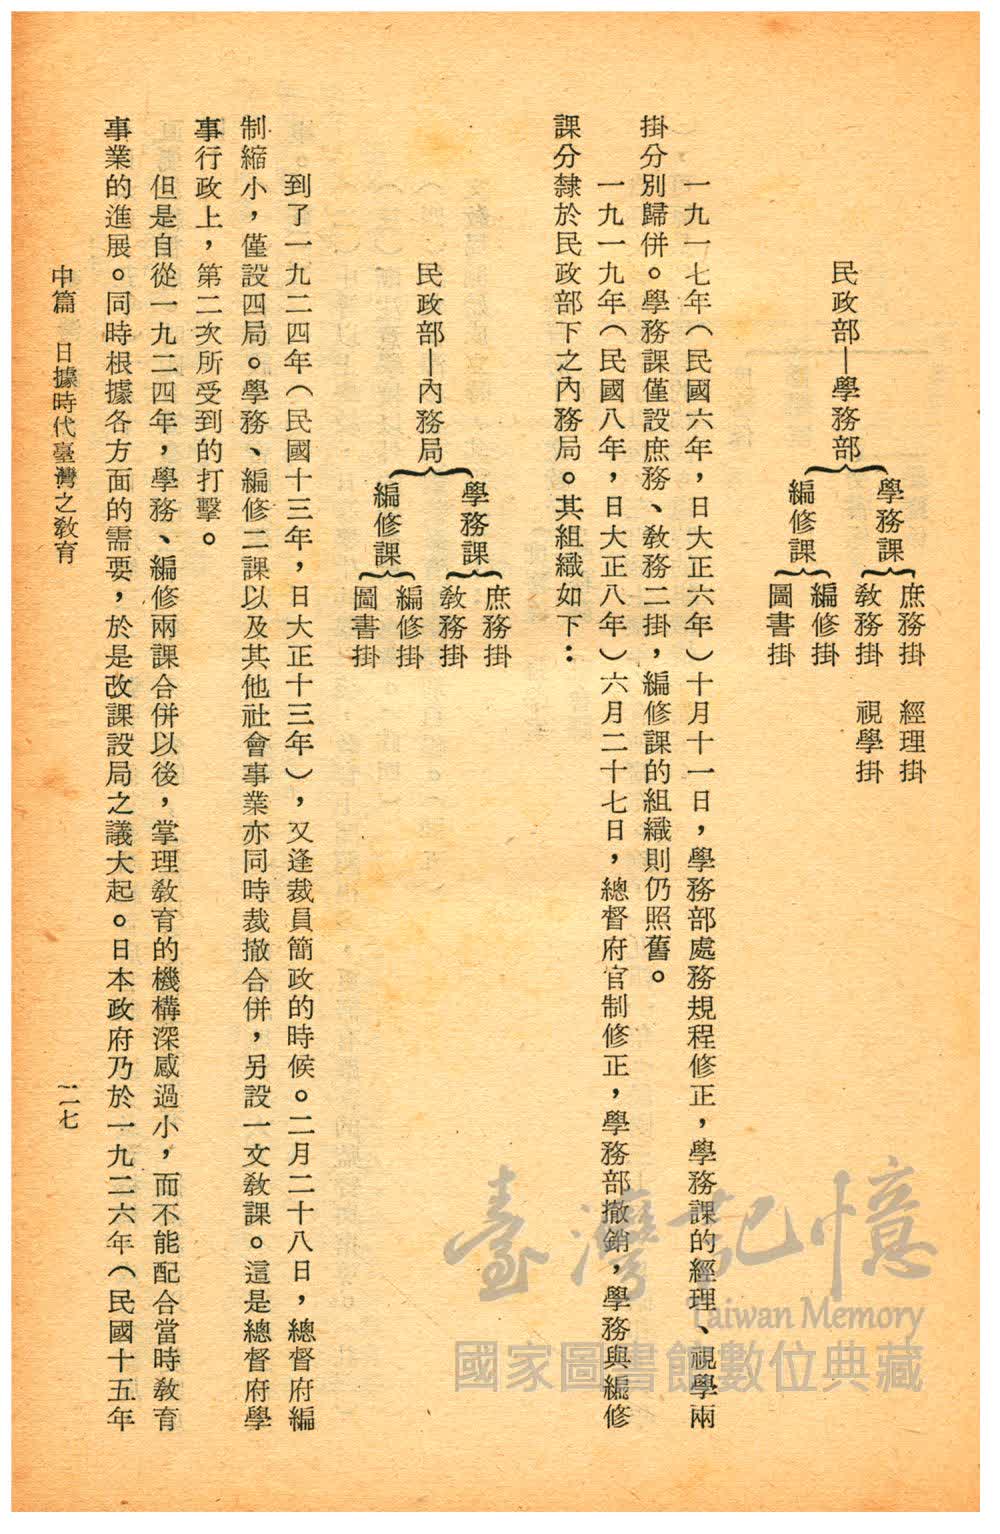 民政部—學務部
學務課
庶務掛　經理掛
敎務掛　視學掛
編修課
編修掛
圖書掛
一九一七年（民國六年，日大正六年）十月十一日，學務部處務規程修正，學務課的經理、視學兩
掛分別歸併。學務課僅設庶務、敎務二掛，編修課的組織則仍照舊。
一九一九年（民國八年，日大正八年）六月二十七日，總督府官制修正，學務部撤銷，學務與編修
課分隸於民政部下之內務局。其組織如下：
民政部—內務局
學務課
庶務掛
敎務掛
編修課
編修掛
圖書掛
到了一九二四年（民國十三年，日大正十三年），又逢裁員簡政的時候。二月二十八日，總督府編
制縮小，僅設四局。學務、編修二課以及其他社會事業亦同時裁撤合併，另設一文敎課。這是總督府學
事行政上，第二次所受到的打擊。
但是自從一九二四年，學務、編修兩課合併以後，掌理敎育的機構深感過小，而不能配合當時敎育
事業的進展。同時根據各方面的需要，於是改課設局之議大起。日本政府乃於一九二六年（民國十五年
中篇　日據時代臺灣之敎育
二七
臺灣記憶
Taiwan Memory
國家圖書館數位典藏